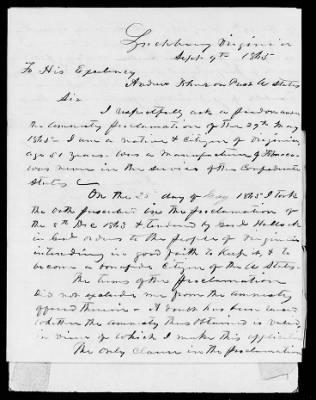 Lynchburg Virginia
Sept 9th 1865
To His Excelency
Andrew Johnson Prest U States
Sir
I respectfully ask a pardon under
the amnesty proclamation of the 29th May
1865. I am a native & citizen of Virginia,
age 51 years. Was a manufacturer of Tobacco
was never in the service of the Confederate
States
On the 25 day of May 1865 I took
the oath prescribed in the proclamation of
the 8th Dec 1863 & tendered by Genl Halleck
in his orders to the people of Virginia
intending in good faith to keep it, & to
become a citizen of the U States.
The terms of the proclamation
did not exclude me from the amnesty
offered therein. A doubt has been raised
whether the amnesty thus obtained is valid,
in view of which I make this application
The only clause in the proclamation